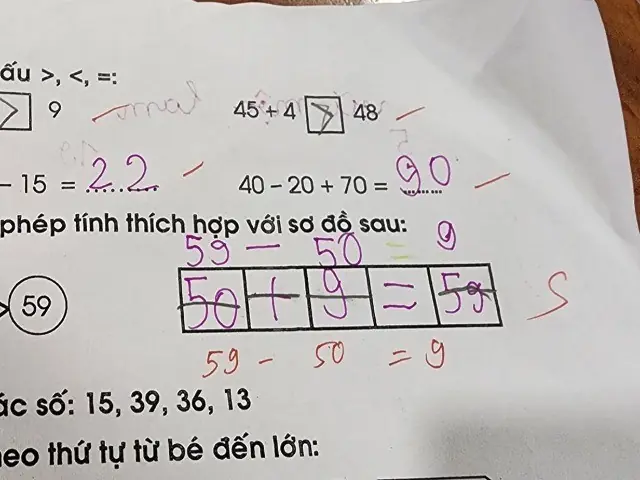 ấu >, <, =:
> 9 45 + 4 > 48
– 15 = 22 40 – 20 + 70 = 90
phép tính thích hợp với sơ đồ sau:
59 – 50 = 9
59 50 + 9 = 59 S
59 – 50 = 9
ác số: 15, 39, 36, 13
heo thứ tự từ bé đến lớn: